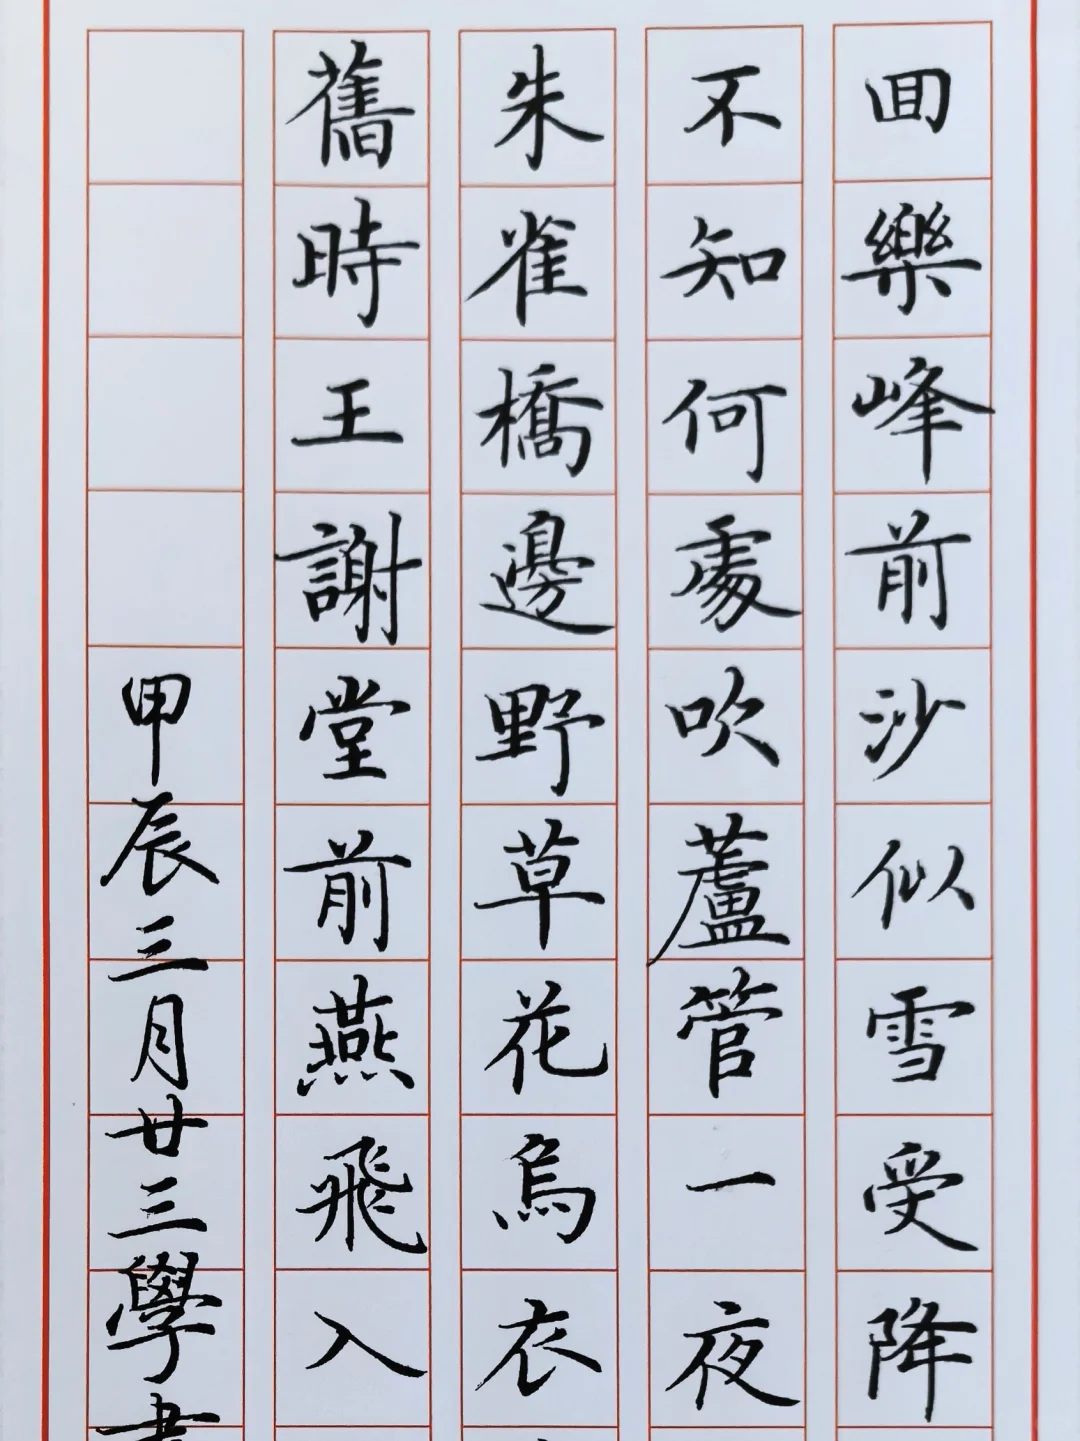 回樂峰前沙似雪受降
不知何處吹蘆管一夜
朱雀橋邊野草花烏衣
舊時王謝堂前燕飛入
甲辰三月廿三學書